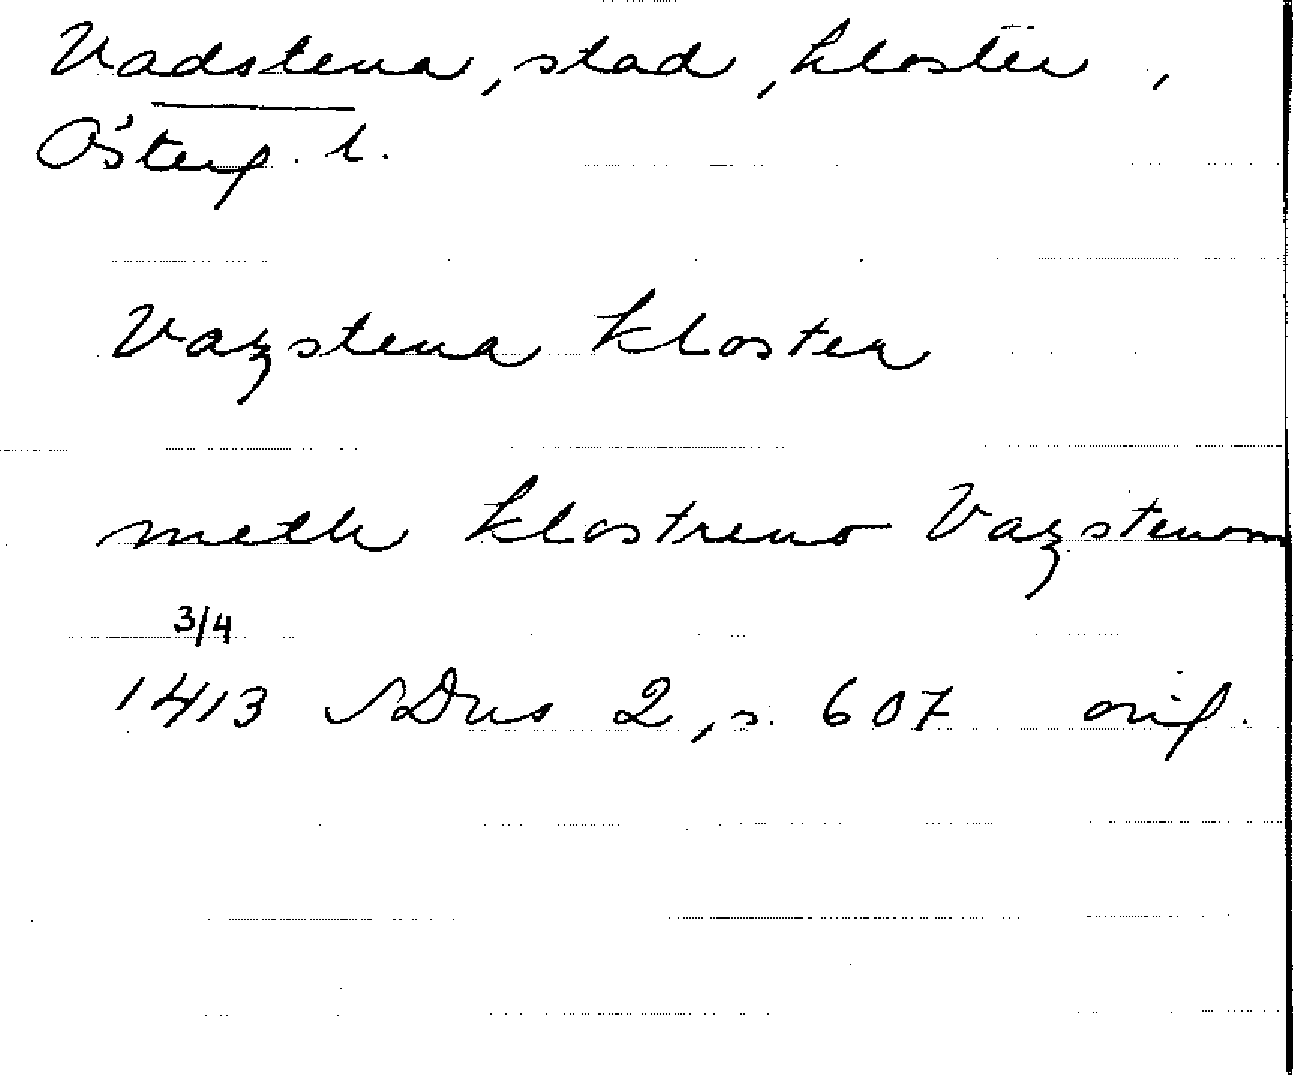 Vadstena, stad, kloster,
Österg. l.
Vazstena kloster
meth klostreno Vazstenom
3/4
1413 SDns 2, s. 607 orig.